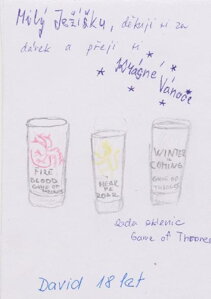 Milý Ježíšku, děkuji ti za
dárek a přeji ti
krásné
Vánoce
FIRE
BLOOD
GAME OF
THRONES
HEAR
ME
ROAR
WINTER
COMING
GAME OF
THRONES
sada sklenic
Game of Thrones
David 18 let